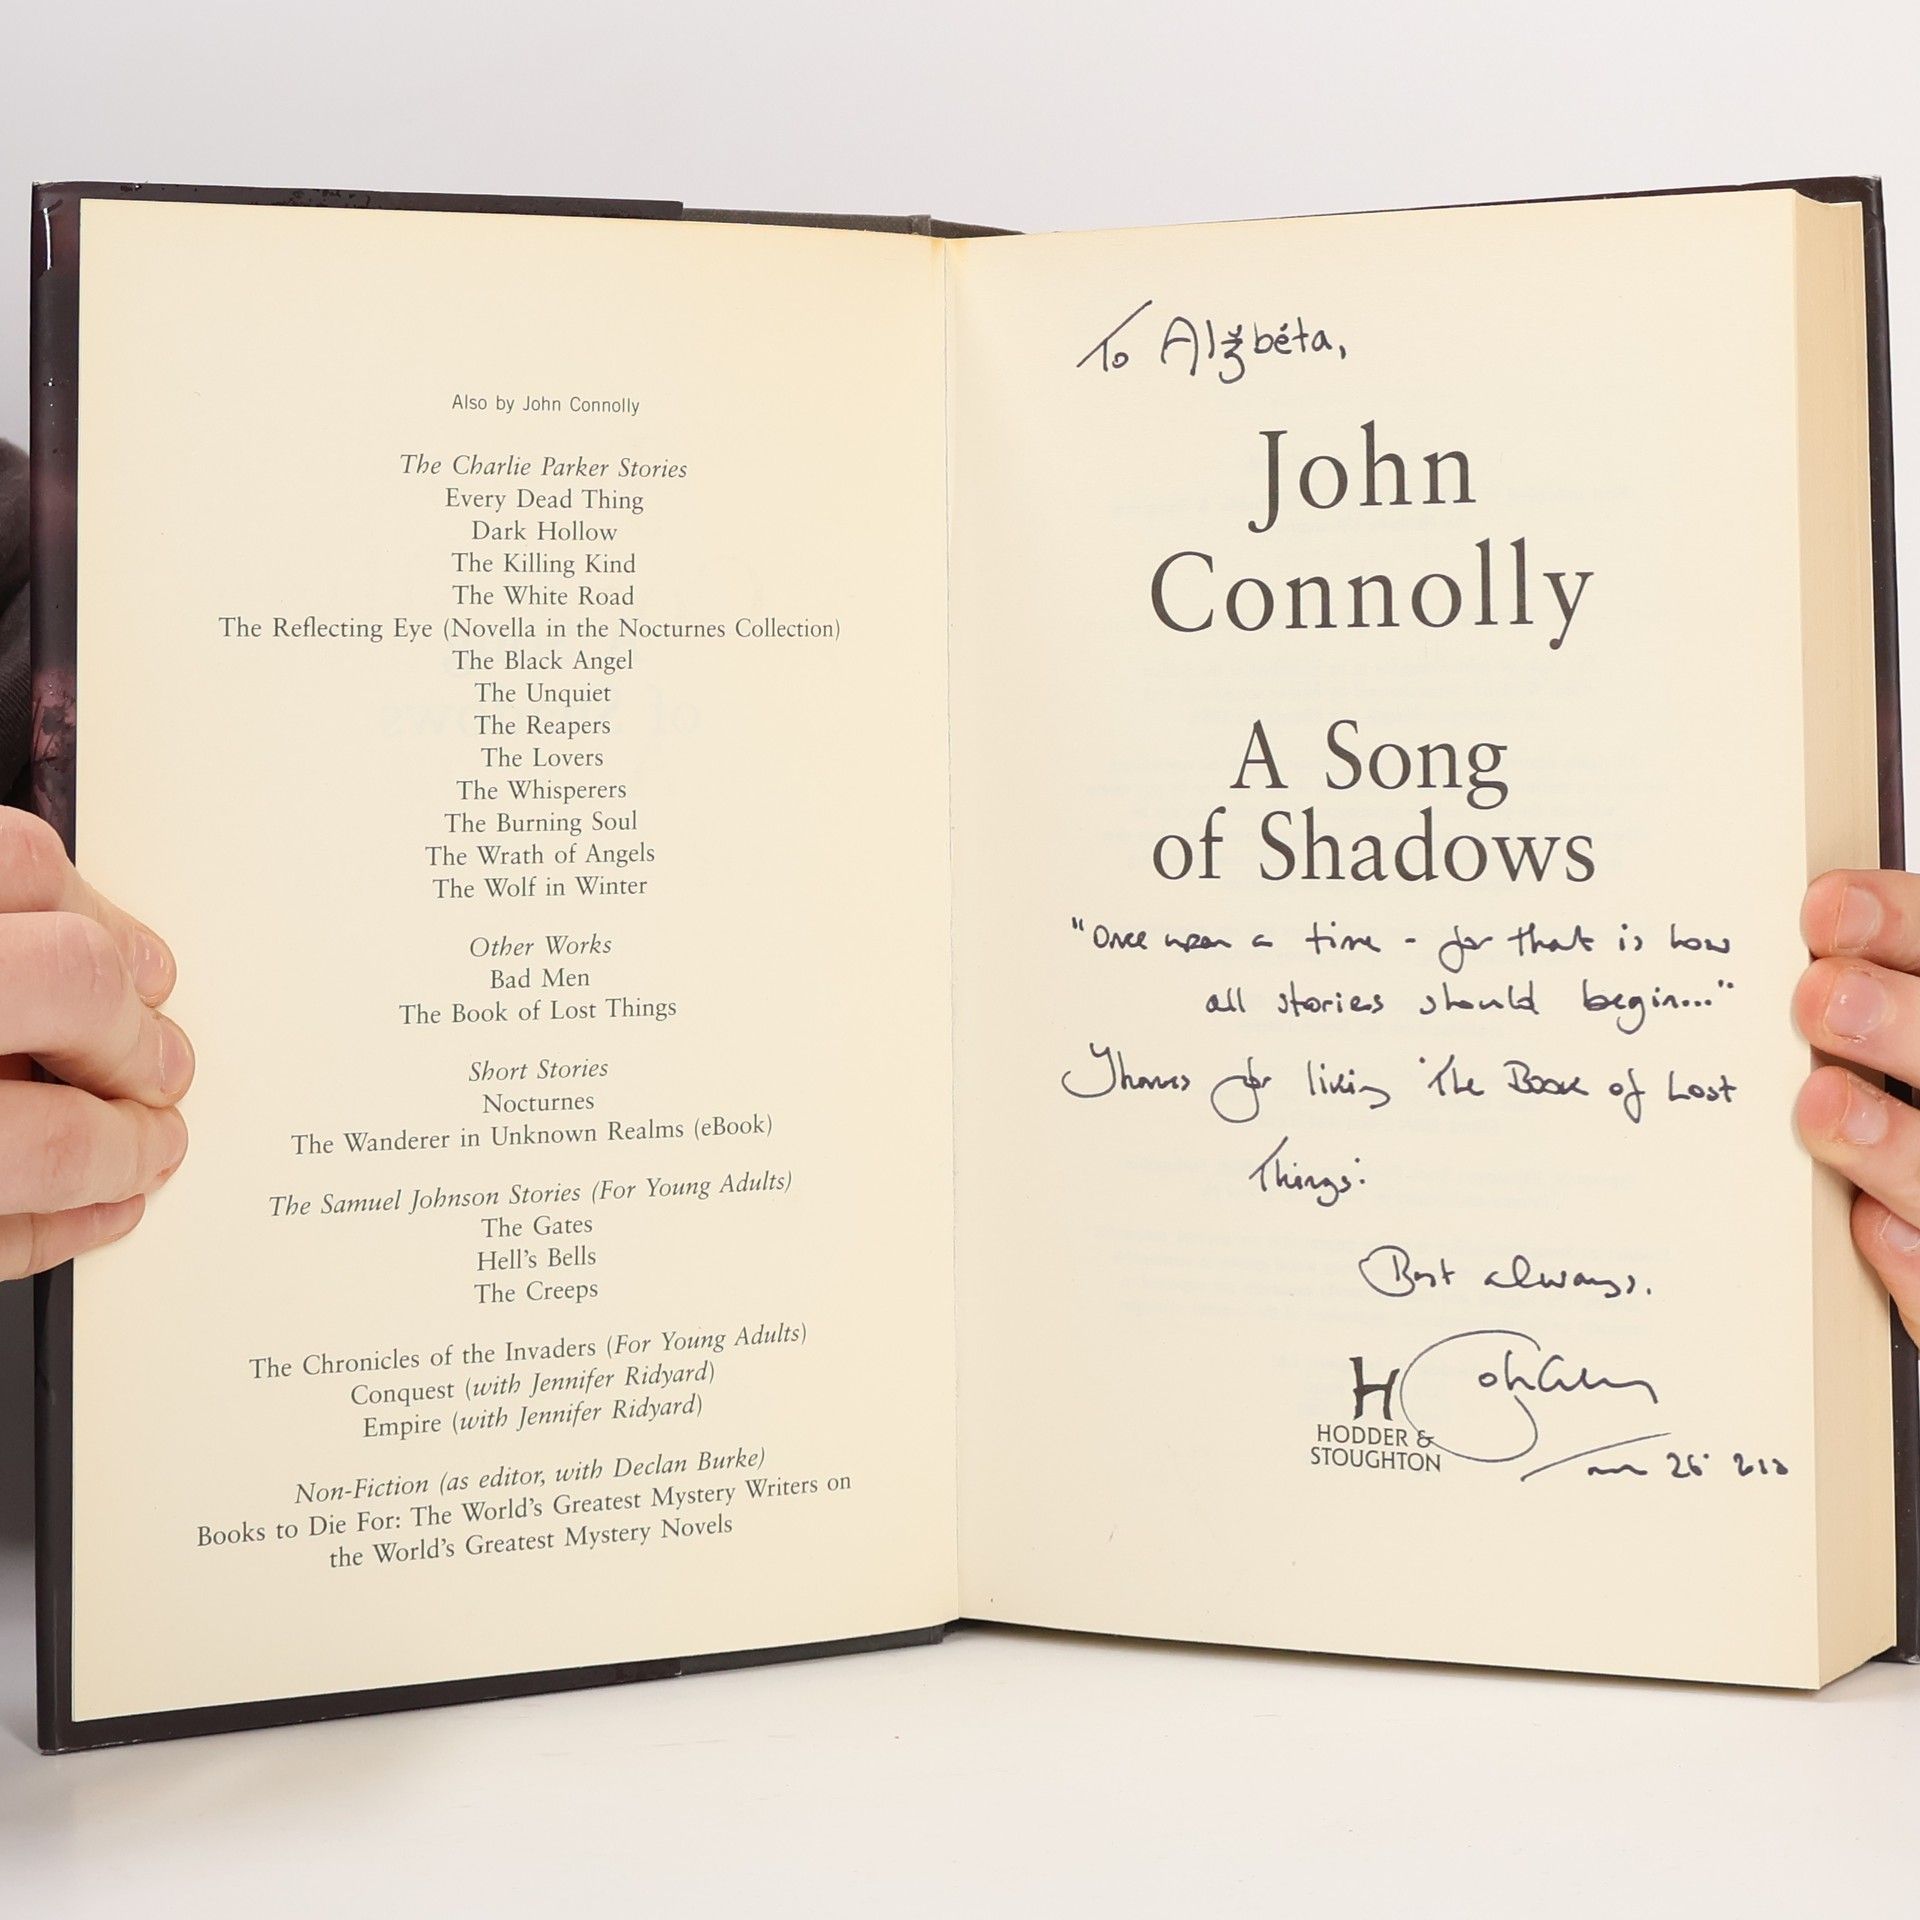 Also by John Connolly
The Charlie Parker Stories
Every Dead Thing
Dark Hollow
The Killing Kind
The White Road
The Reflecting Eye (Novella in the Nocturnes Collection)
The Black Angel
The Unquiet
The Reapers
The Lovers
The Whisperers
The Burning Soul
The Wrath of Angels
The Wolf in Winter
Other Works
Bad Men
The Book of Lost Things
Short Stories
Nocturnes
The Wanderer in Unknown Realms (eBook)
The Samuel Johnson Stories (For Young Adults)
The Gates
Hell's Bells
The Creeps
The Chronicles of the Invaders (For Young Adults)
Conquest (with Jennifer Ridyard)
Empire (with Jennifer Ridyard)
Non-Fiction (as editor, with Declan Burke)
Books to Die For: The World's Greatest Mystery Writers on
the World's Greatest Mystery Novels
To Alžbéta,
John
Connolly
A Song
of Shadows
"Once upon a time - for that is how
all stories should begin..."
Thanks for liking 'The Book of Lost
Things.
Best always,
John Connolly
HODDER &
STOUGHTON